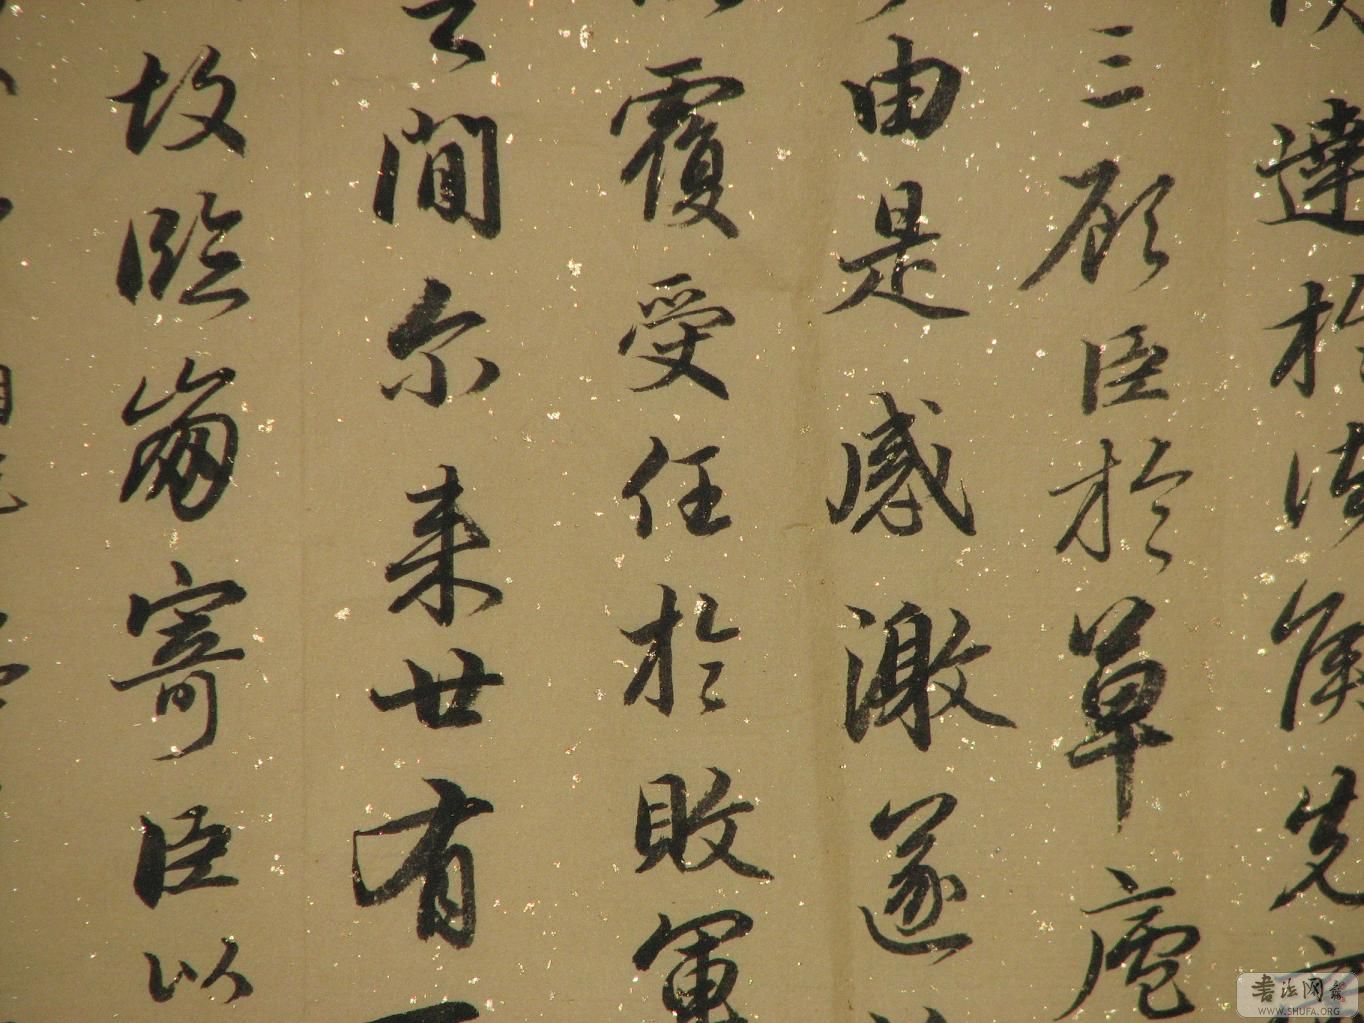 達於諸侯先
三顧臣於草廬
由是感激遂
覆受任於敗軍
間尔来廿有
故臨崩寄臣以
書法网
WWW.SHUFA.ORG